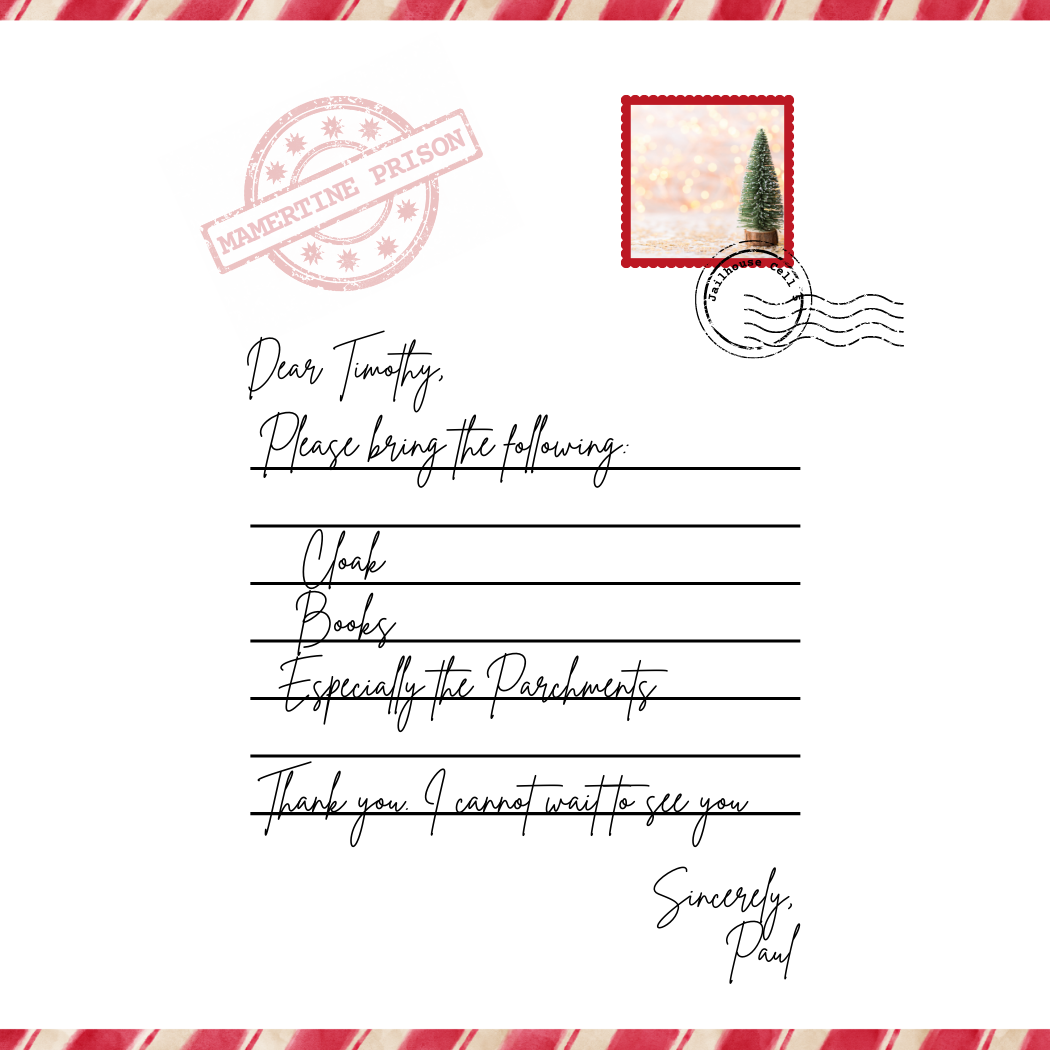 MAMERTINE PRISON
Jailhouse Cell 5
Dear Timothy,
Please bring the following:
Cloak
Books
Especially the Parchments
Thank you. I cannot wait to see you
Sincerely,
Paul